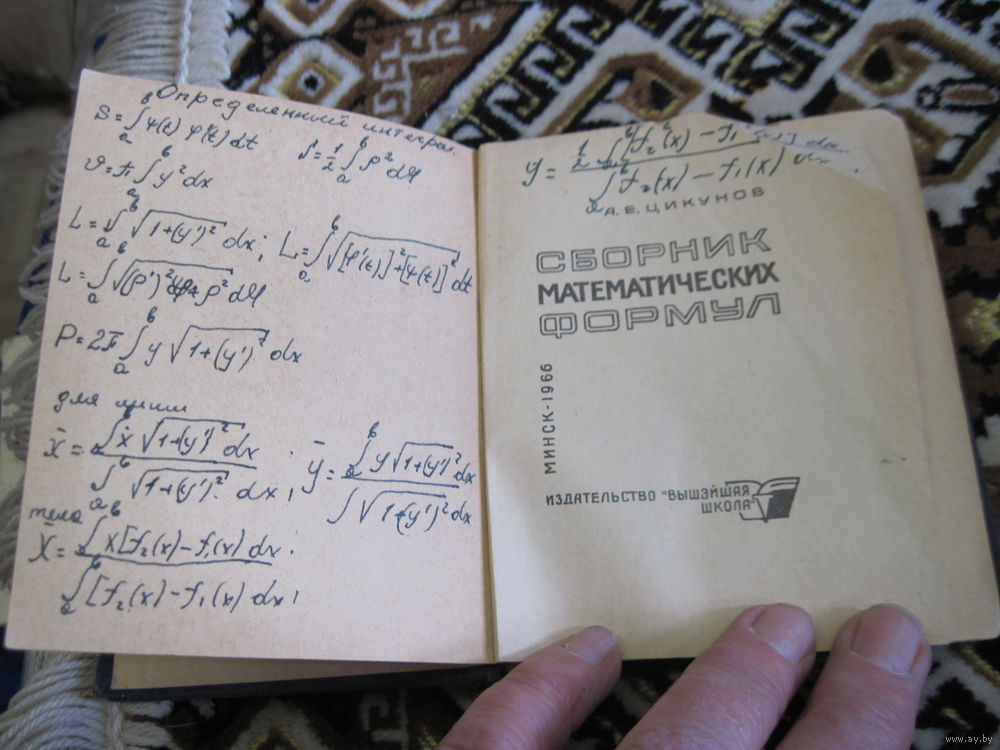 Определенный интеграл.
S = ∫ₐᵇ ψ(t) φ'(t) dt
S = 1/2 ∫ₐᵇ ρ² dφ
v = π ∫ₐᵇ y² dx
L = ∫ₐᵇ √(1+(y')²) dx; L = ∫ₐᵇ √([φ'(t)]²+[ψ(t)]²) dt
L = ∫ₐᵇ √((ρ')²+ρ²) dφ
P = 2π ∫ₐᵇ y √(1+(y')²) dx
для линии
x̄ = ∫ₐᵇ x √(1+(y')²) dx / ∫ₐᵇ √(1+(y')²) dx, ȳ = ∫ₐᵇ y √(1+(y')²) dx / ∫ √(1+(y')²) dx
тела
x̄ = ∫ₐᵇ x[f₂(x) – f₁(x) dx / ∫ₐᵇ [f₂(x) – f₁(x) dx;
y = 1/2 ∫ₐᵇ [f₂²(x) – f₁²(x)] dx / ∫ₐᵇ f₂(x) – f₁(x) dx
А.Е.ЦИКУНОВ
СБОРНИК
МАТЕМАТИЧЕСКИХ
ФОРМУЛ
МИНСК-1966
ИЗДАТЕЛЬСТВО "ВЫШЭЙШАЯ
ШКОЛА"
www.ay.by